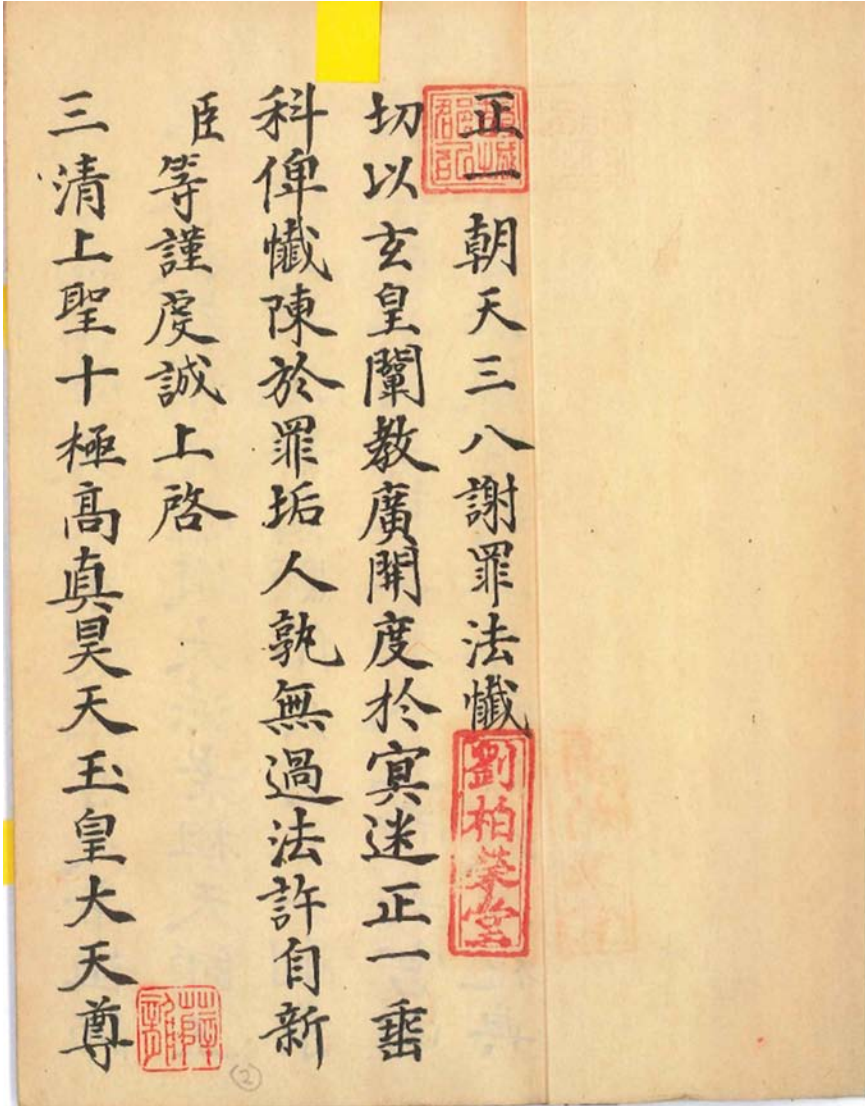 正一朝天三八謝罪法懺
劉柏榮堂
切以玄皇闡教廣開度於寅迷正一垂
科俾懺陳於罪垢人孰無過法許自新
臣等謹虔誠上啓
三清上聖十極高真昊天玉皇大天尊
②